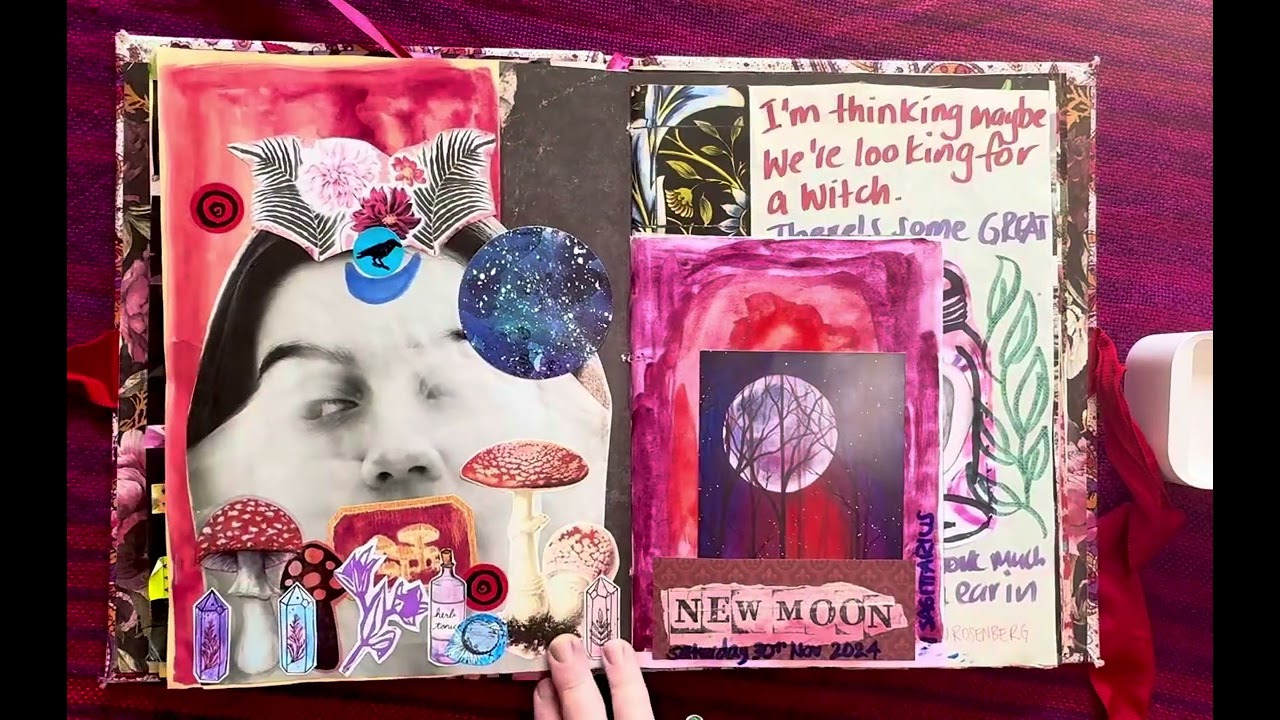 I'm thinking maybe
We're looking for
a Witch.
There's some GREAT
much
ear in
ROSENBERG
SAGITTARIUS
NEW MOON
Saturday 30th Nov 2024
herb
tonic